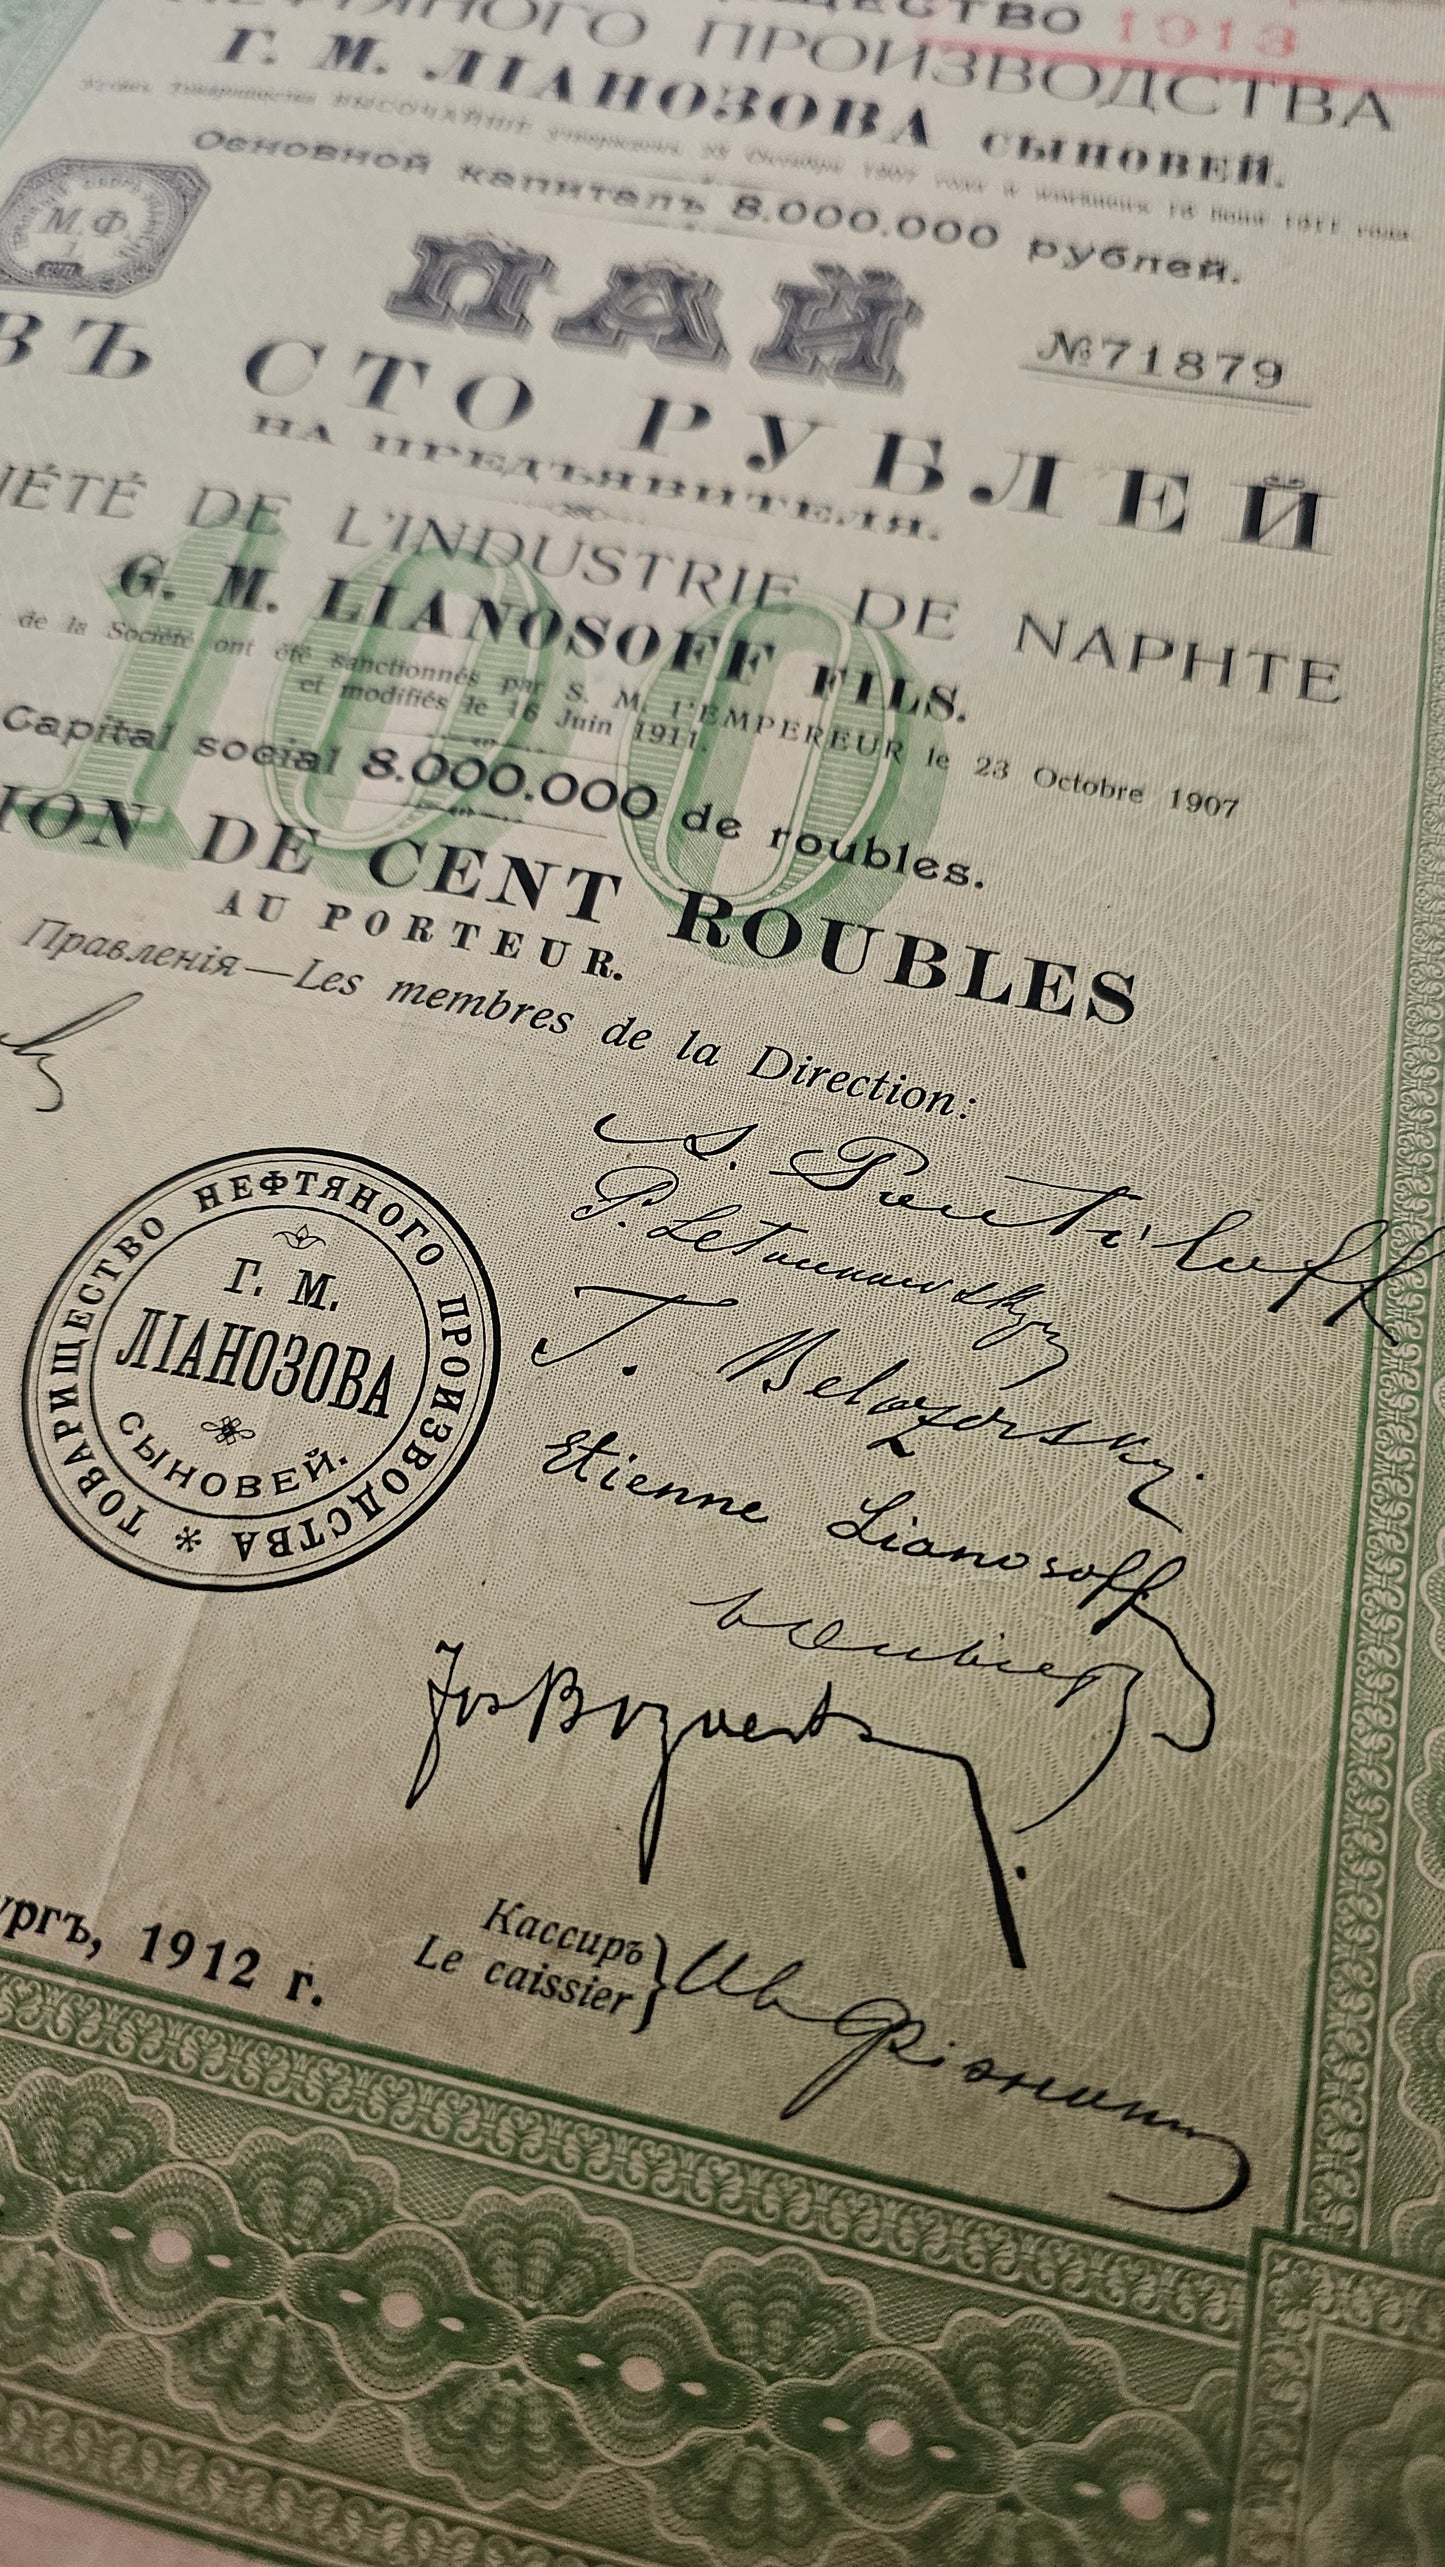 1913
НЕФТЯНОГО ПРОИЗВОДСТВА
Г. М. ЛІАНОЗОВА СЫНОВЕЙ.
Основной капиталъ 8.000.000 рублей.
М.Ф.
ПАЙ
№71879
ВЪ СТО РУБЛЕЙ
НА ПРЕДЪЯВИТЕЛЯ.
100
DE L'INDUSTRIE DE NAPHTE
G. M. LIANOSOFF FILS.
de la Société ont été sanctionnés par S. M. l'EMPEREUR le 23 Octobre 1907
et modifiés le 16 Juin 1911.
Capital social 8.000.000 de roubles.
DE CENT ROUBLES
AU PORTEUR.
Правленія—Les membres de la Direction:
A. Poutiloff
P.
T. Belozorsky.
Etienne Lianosoff
ТОВАРИЩЕСТВО НЕФТЯНОГО ПРОИЗВОДСТВА *
Г. М.
ЛІАНОЗОВА
СЫНОВЕЙ.
1912 г.
Кассиръ
Le caissier